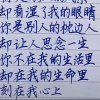 却看湿了我的眼睛
你是别人的枕边人
却让人思念一生
你不在我的生活里
却在我的生命里
刻在我心上